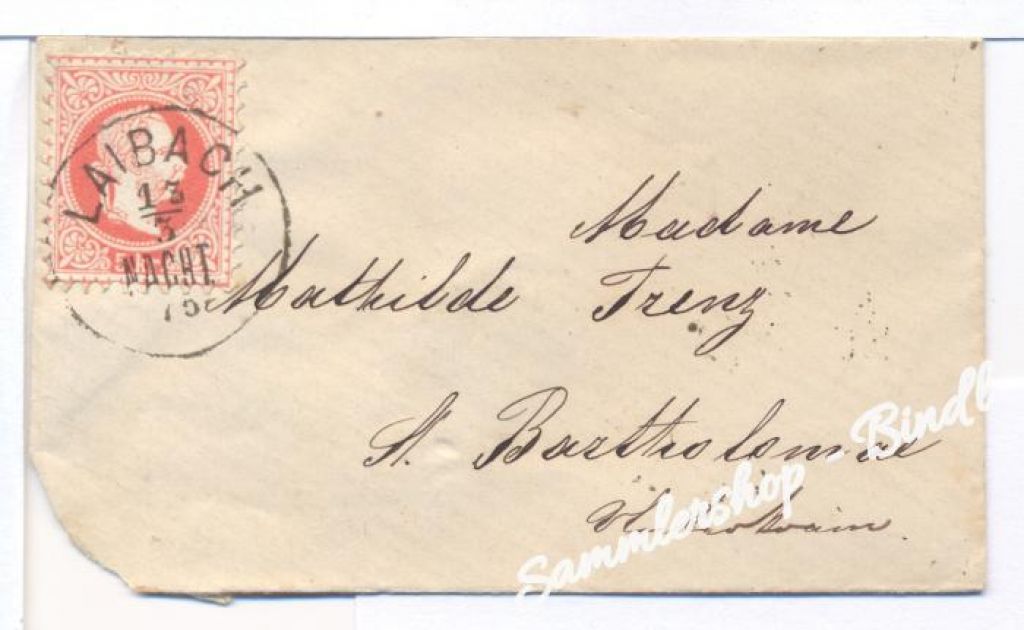 LAIBACH
13
3
NACHT
Madame
Mathilde Trenz
St. Bartholomae
Sammlershop - Bindl